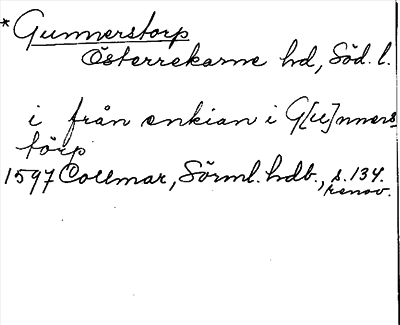 *Gunnerstorp
Österrekarne hd, Söd. l.
i från enkian i G[u]nners
törp
1597 Collmar, Sörml. hdb., s. 134.
renov.